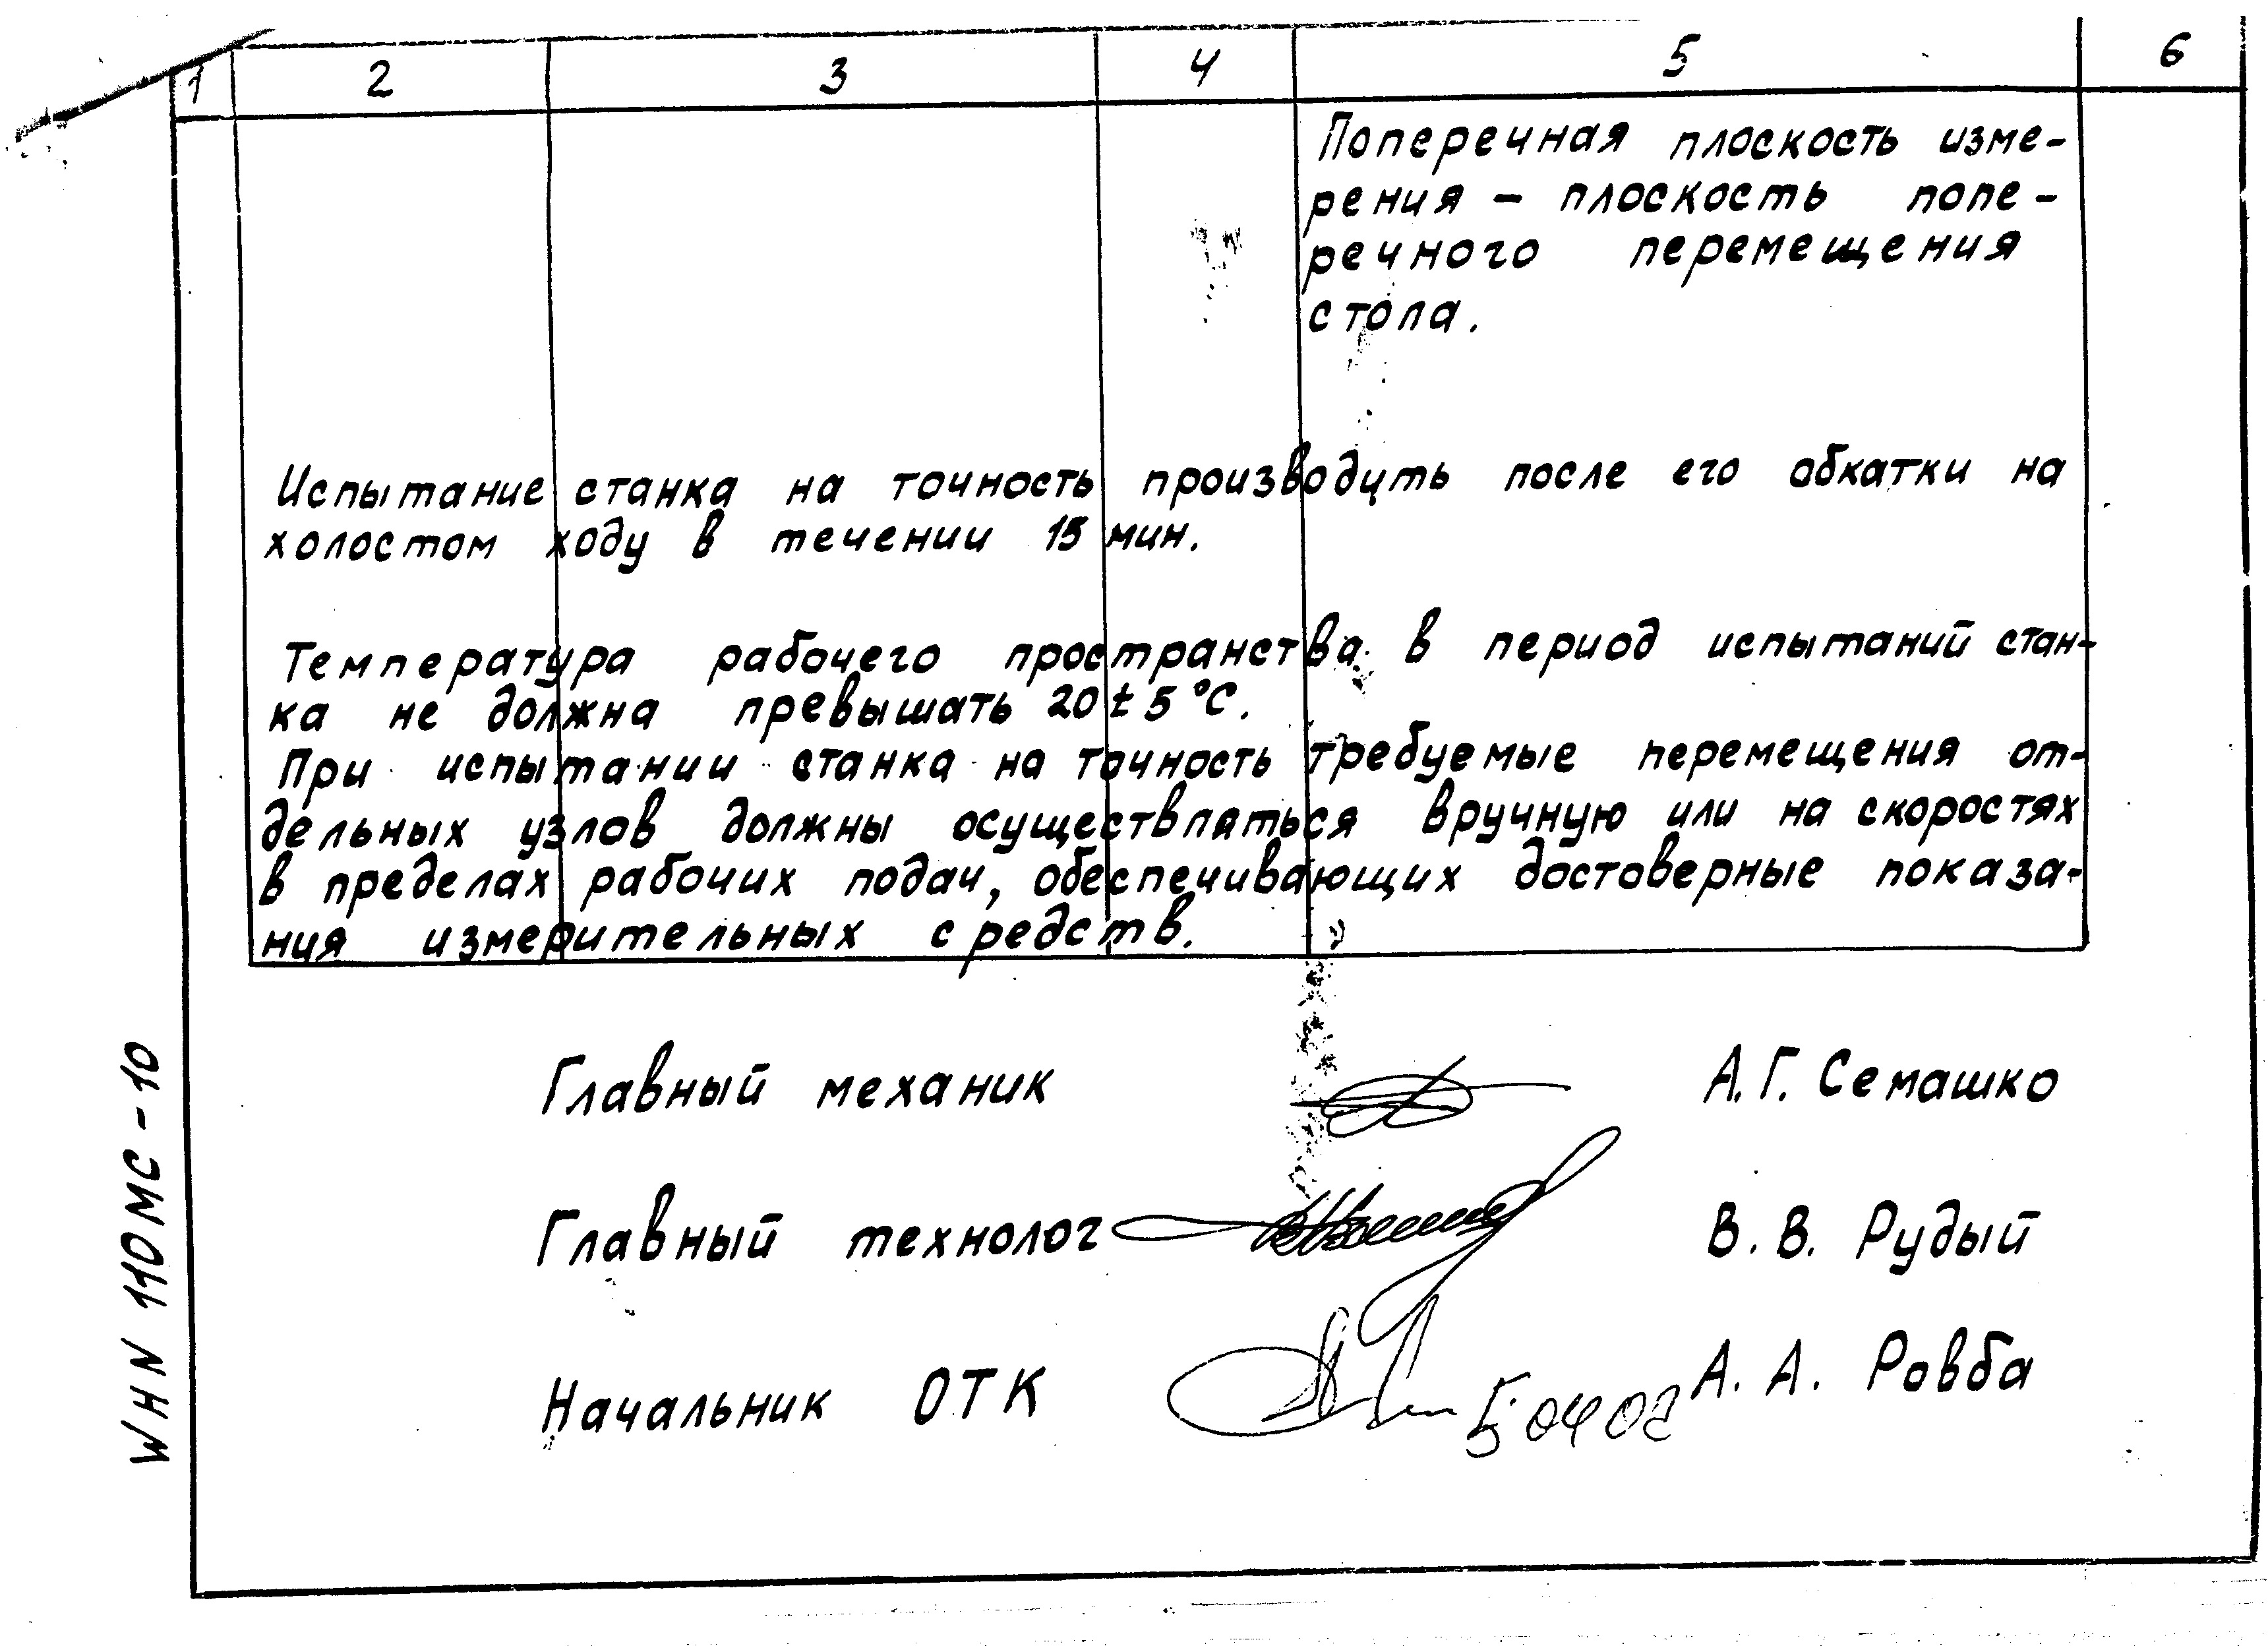 1 2 3 4 5 6
Поперечная плоскость изме-
рения - плоскость попе-
речного перемещения
стола.
Испытание станка на точность производить после его обкатки на
холостом ходу в течении 15 мин.
Температура рабочего пространства в период испытаний стан-
ка не должна превышать 20 ± 5 °С.
При испытании станка на точность требуемые перемещения от-
дельных узлов должны осуществляться вручную или на скоростях
в пределах рабочих подач, обеспечивающих достоверные показа-
ния измерительных средств.
Главный механик А.Г. Семашко
Главный технолог В.В. Рудый
Начальник ОТК А.А. Ровба
WHN 110МС-10